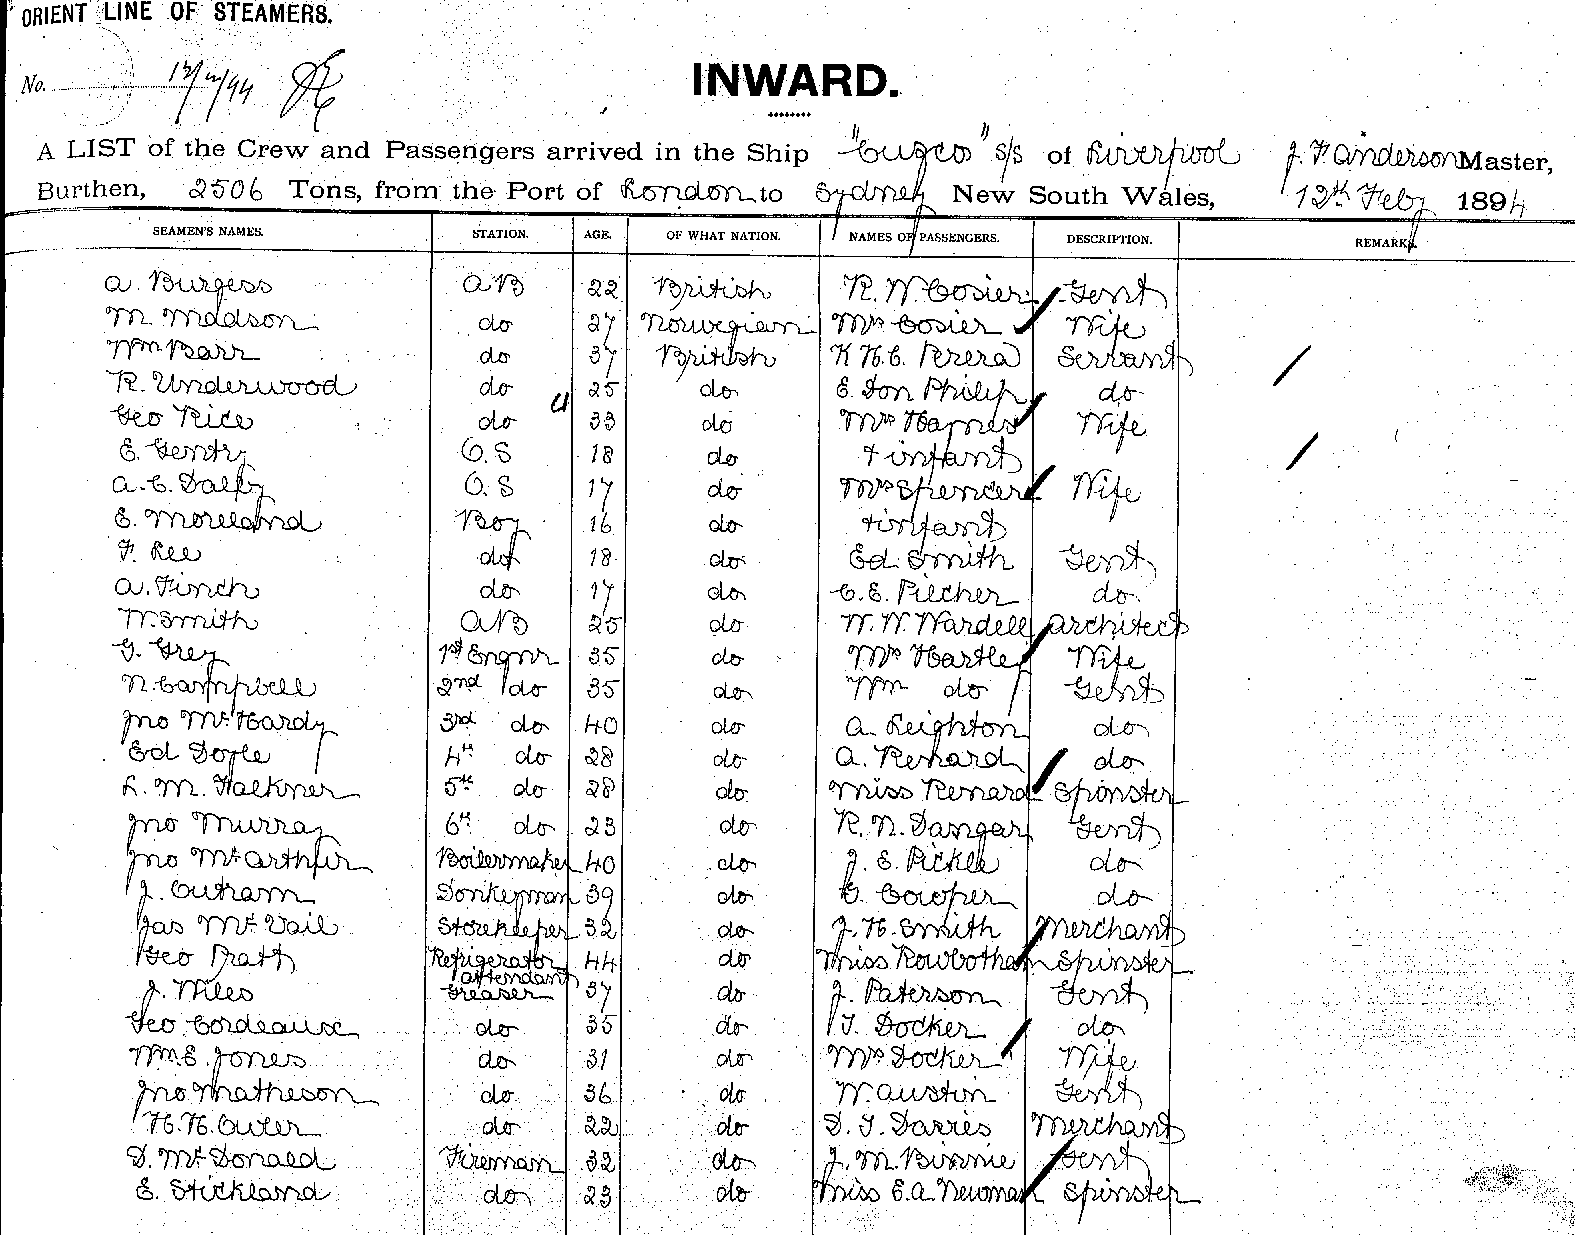 ORIENT LINE OF STEAMERS.
No. 13/2/94
INWARD.
A LIST of the Crew and Passengers arrived in the Ship "Cuzco" s/s of Liverpool J. F. Anderson Master,
Burthen, 2506 Tons, from the Port of London to Sydney New South Wales, 12th Feby 1894
SEAMEN'S NAMES. STATION. AGE. OF WHAT NATION. NAMES OF PASSENGERS. DESCRIPTION. REMARKS.
A. Burgess AB 22 British R. W. Cosier Gent
M. Madson do 27 Norwegian Mrs Cosier Wife
Wm Barr do 37 British K H. C. Perera Servant
R. Underwood do 25 do E. Don Philip do
Geo Rice do 33 do Mrs Haynes Wife
E. Gentry O.S 18 do + infant
A. C. Dalby O.S 17 do Mrs Spencer Wife
E. Moreland Boy 16 do + infant
F. Lee do 18 do Ed Smith Gent
A. Finch do 17 do C. E. Pilcher do
W. Smith AB 25 do W. W. Wardell Architect
G. Grey 1st Engnr 35 do Mrs Hartley Wife
N. Campbell 2nd do 35 do Wm do Gent
Jno McHardy 3rd do 40 do A. Leighton do
Ed Doyle 4th do 28 do A. Renard do
L. M. Falkner 5th do 28 do Miss Renard Spinster
Jno Murray 6th do 23 do R. N. Dangar Gent
Jno McArthur Boilermaker 40 do J. E. Pickle do
J. Outram Donkeyman 39 do C. Cowper do
Jas McVail Storekeeper 32 do J. H. Smith Merchant
Geo Pratt Refrigerator attendant 44 do Miss Rowbotham Spinster
J. Wiles Greaser 37 do J. Paterson Gent
Geo Cordeaux do 35 do T. Docker do
Wm E. Jones do 31 do Mrs Docker Wife
Jno Matheson do 36 do W Austin Gent
H. H. Cutler do 22 do D. T. Davies Merchant
D. McDonald Fireman 32 do J. M. Binnie Gent
E. Stickland do 23 do Miss E. A. Newman Spinster